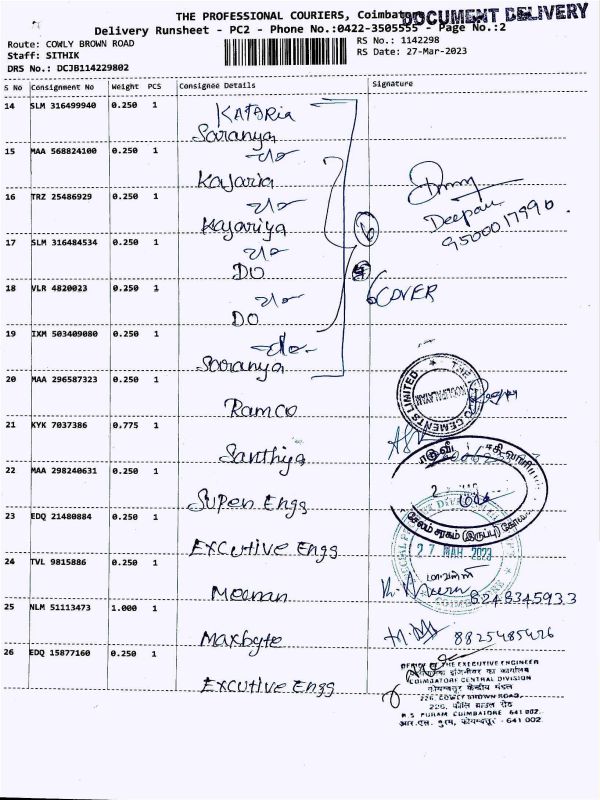 THE PROFESSIONAL COURIERS, Coimbat
DOCUMENT DELIVERY
Delivery Runsheet - PC2 - Phone No.:0422-3505555 - Page No.:2
Route: COWLY BROWN ROAD
RS No.: 1142298
Staff: SITHIK
RS Date: 27-Mar-2023
DRS No.: DCJB114229802
S No Consignment No Weight PCS Consignee Details Signature
14 SLM 316499940 0.250 1 KATARIA
Saranya
15 MAA 568824100 0.250 1
Kajaria
16 TRZ 25486929 0.250 1
Kajariya
Deepan
9500017990
17 SLM 316484534 0.250 1
DO
18 VLR 4820023 0.250 1
DO
6 COVER
19 IXM 503409080 0.250 1
Saranya
20 MAA 296587323 0.250 1
Ramco
CEMENTS LIMITED
21 KYK 7037386 0.775 1
Santhiya
22 MAA 298240631 0.250 1
Super Engg
23 EDQ 21480884 0.250 1
சேலம் சரகம் (இருப்பு)
Excutive Engg
27 MAR 2023
24 TVL 9815886 0.250 1
Meenan
8248345933
25 NLM 51113473 1.000 1
Maxbyte
8825485426
26 EDQ 15877160 0.250 1
Excutive Engg
OFFICE OF THE EXECUTIVE ENGINEER
COIMBATORE CENTRAL DIVISION
कोयम्बतूर केन्द्रीय मंडल
226, COWLEY BROWN ROAD,
226, कौलि ब्राउन रोड
R S PURAM COIMBATORE 641 002.
आर.एस. पुरम, कोयम्बतूर - 641 002